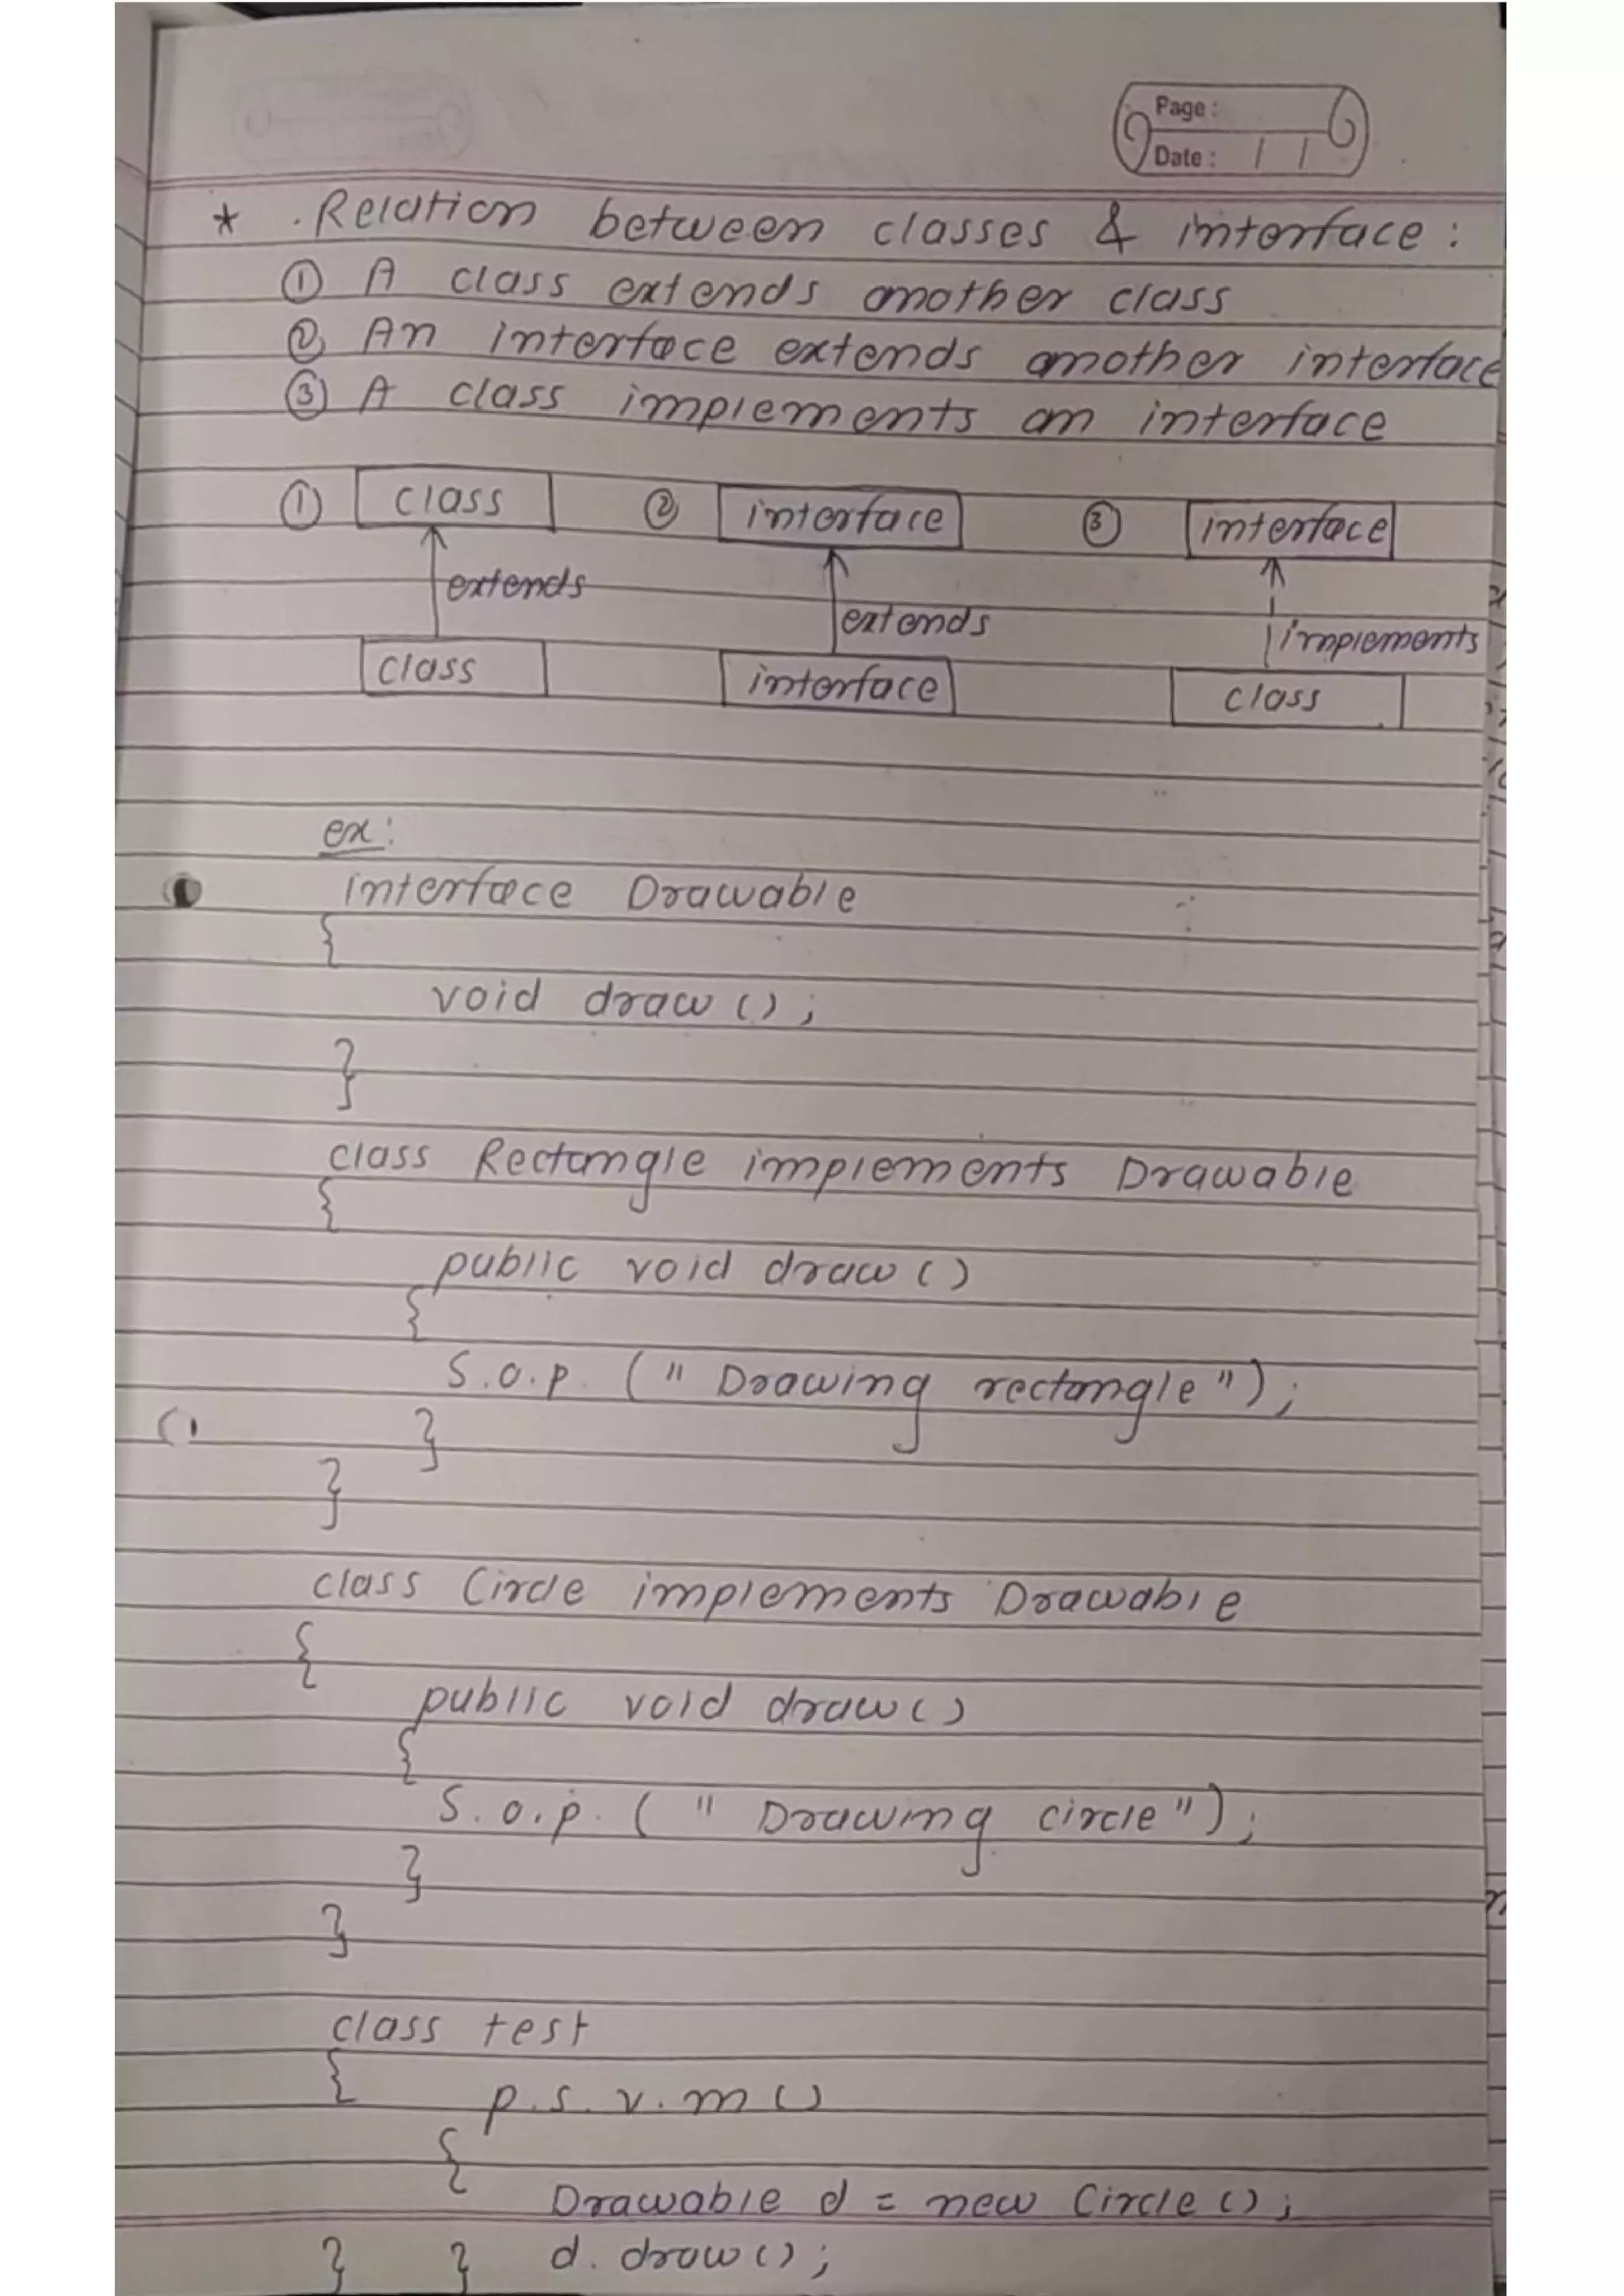 Page :
Date : / /
* . Relation between classes & interface :
① A class extends another class
② An interface extends another interface
③ A class implements an interface
① class ② interface ③ interface
extends extends implements
class interface class
ex :
interface Drawable
{
void draw () ;
}
class Rectangle implements Drawable
{
public void draw ()
{
S.o.p. ( " Drawing rectangle " ) ;
}
}
class Circle implements Drawable
{
public void draw ()
{
S.o.p. ( " Drawing circle " ) ;
}
}
class test
{
p.s.v.m ()
{
Drawable d = new Circle () ;
} } d. draw () ;